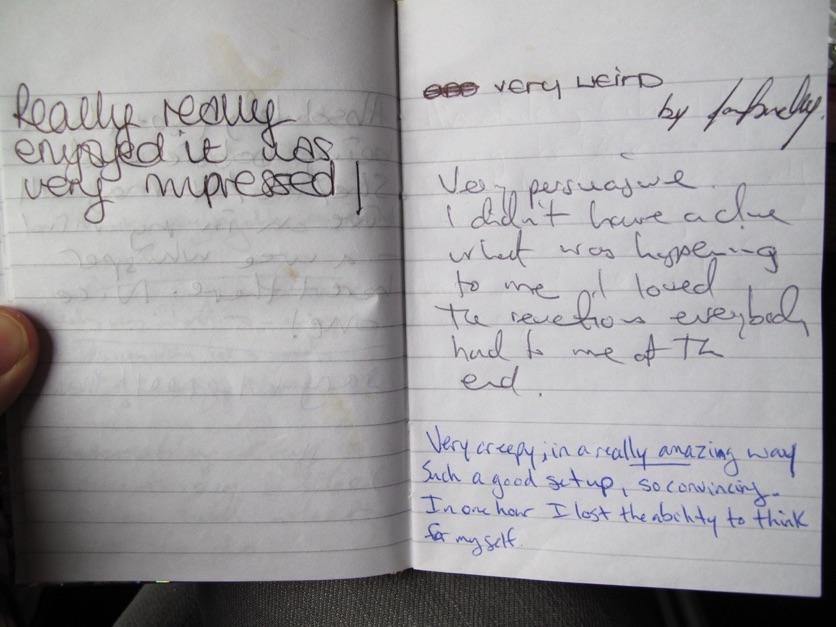 Really really
enjoyed it was
very impressed!
very weird
by
Very persuasive.
I didn't have a clue
what was happening
to me. I loved
the reactions everybody
had to me at the
end.
Very creepy, in a really amazing way
Such a good set up, so convincing.
In one hour I lost the ability to think
for myself.